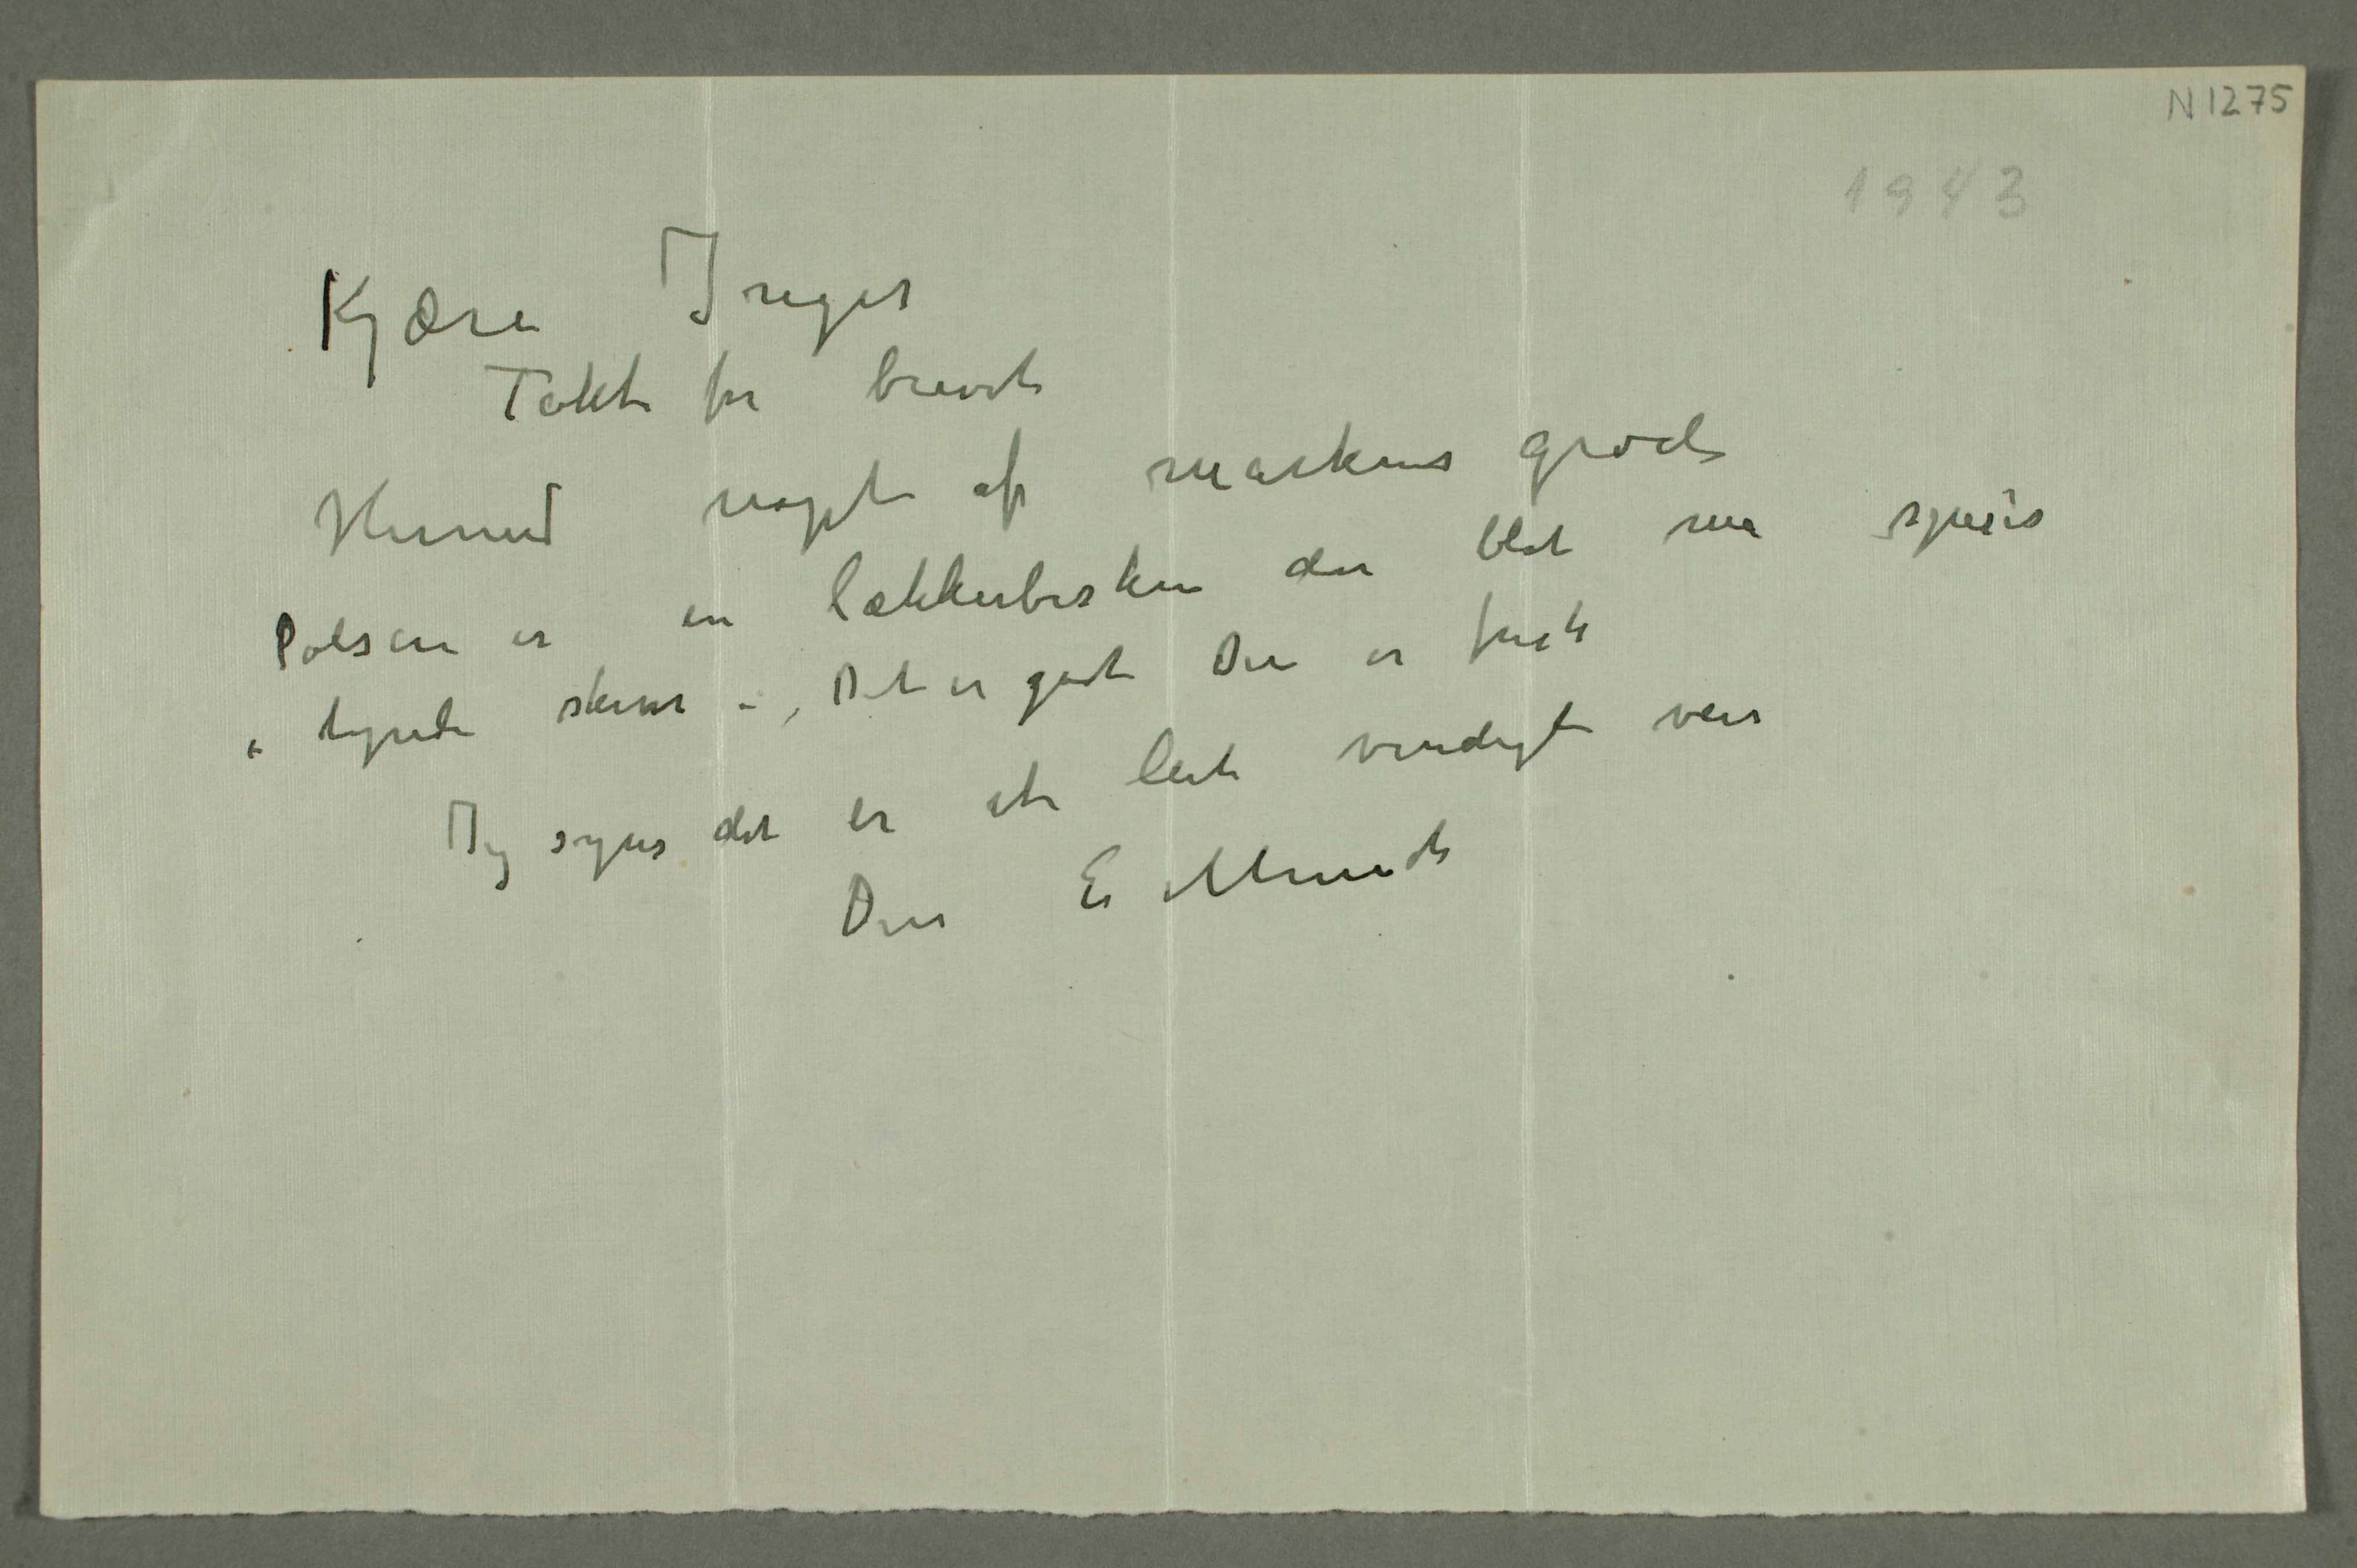 N 1275
1943
Kjære Inger
Takk for brevet
Hermed noget af markens grøde
Pølsen er en lækkerbisken der blot må spises
i tynde skiver –, Det er godt Du er frisk
Jeg synes det er et leit vindigt veir
Din E Munch